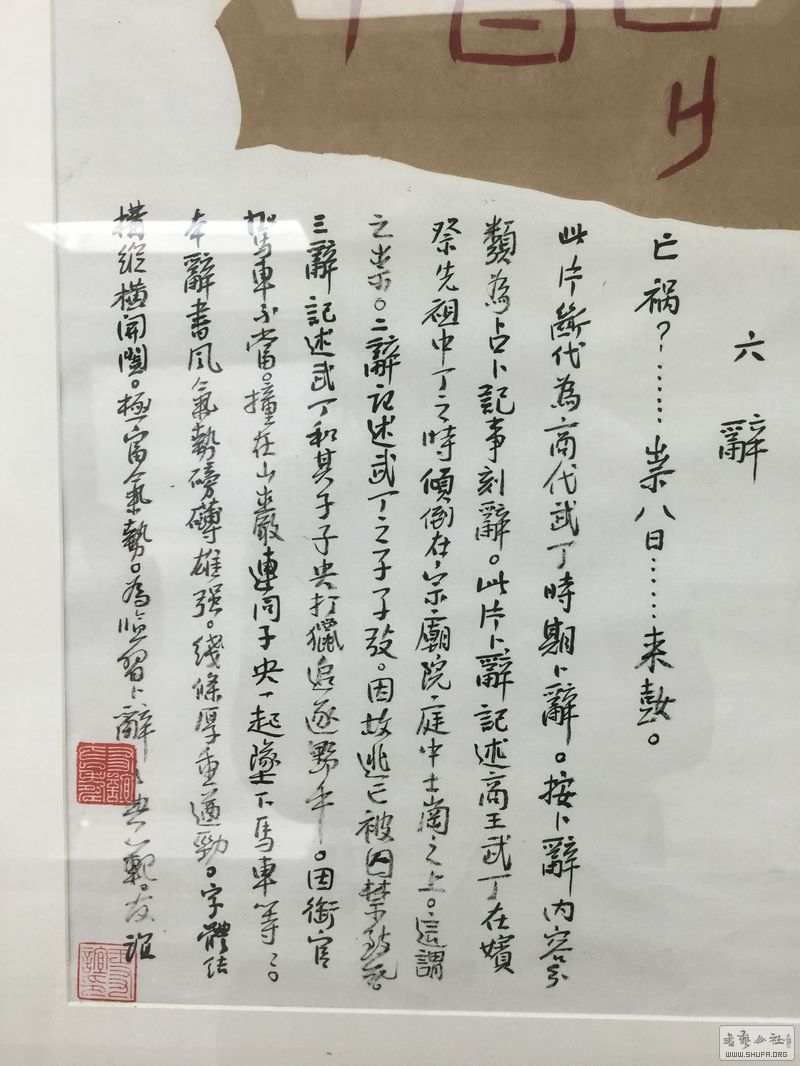 六辭
亡祸？……祟八日……来鼔。
此片断代為商代武丁時期卜辭。按卜辭内容分
類為占卜記事刻辭。此片卜辭記述商王武丁在嬪
祭先祖中丁之時傾倒在宗廟院庭中土崗之上。這謂
之祟。二辭記述武丁之子子㱿。因故逃亡被囚禁致死。
三辭記述武丁和其子子央打獵追逐野牛。因銜官
駕車不當。撞在山巖連同子央一起墜下馬車等。
本辭書風氣勢磅礴雄强。綫條厚重遒勁。字體结
構縱横開闔。極富氣勢。為临習卜辭之典範。友誼
書藝公社
WWW.SHUFA.ORG